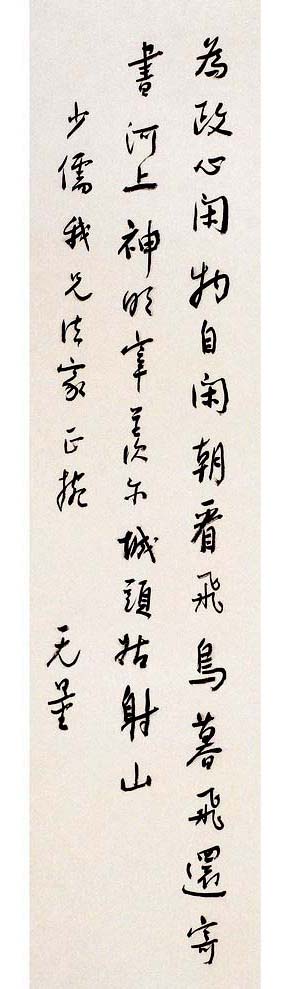 為政心闲物自闲朝看飛鳥暮飛還寄
書河上神明宰羨尔城頭姑射山
少儒我兄法家正
无量